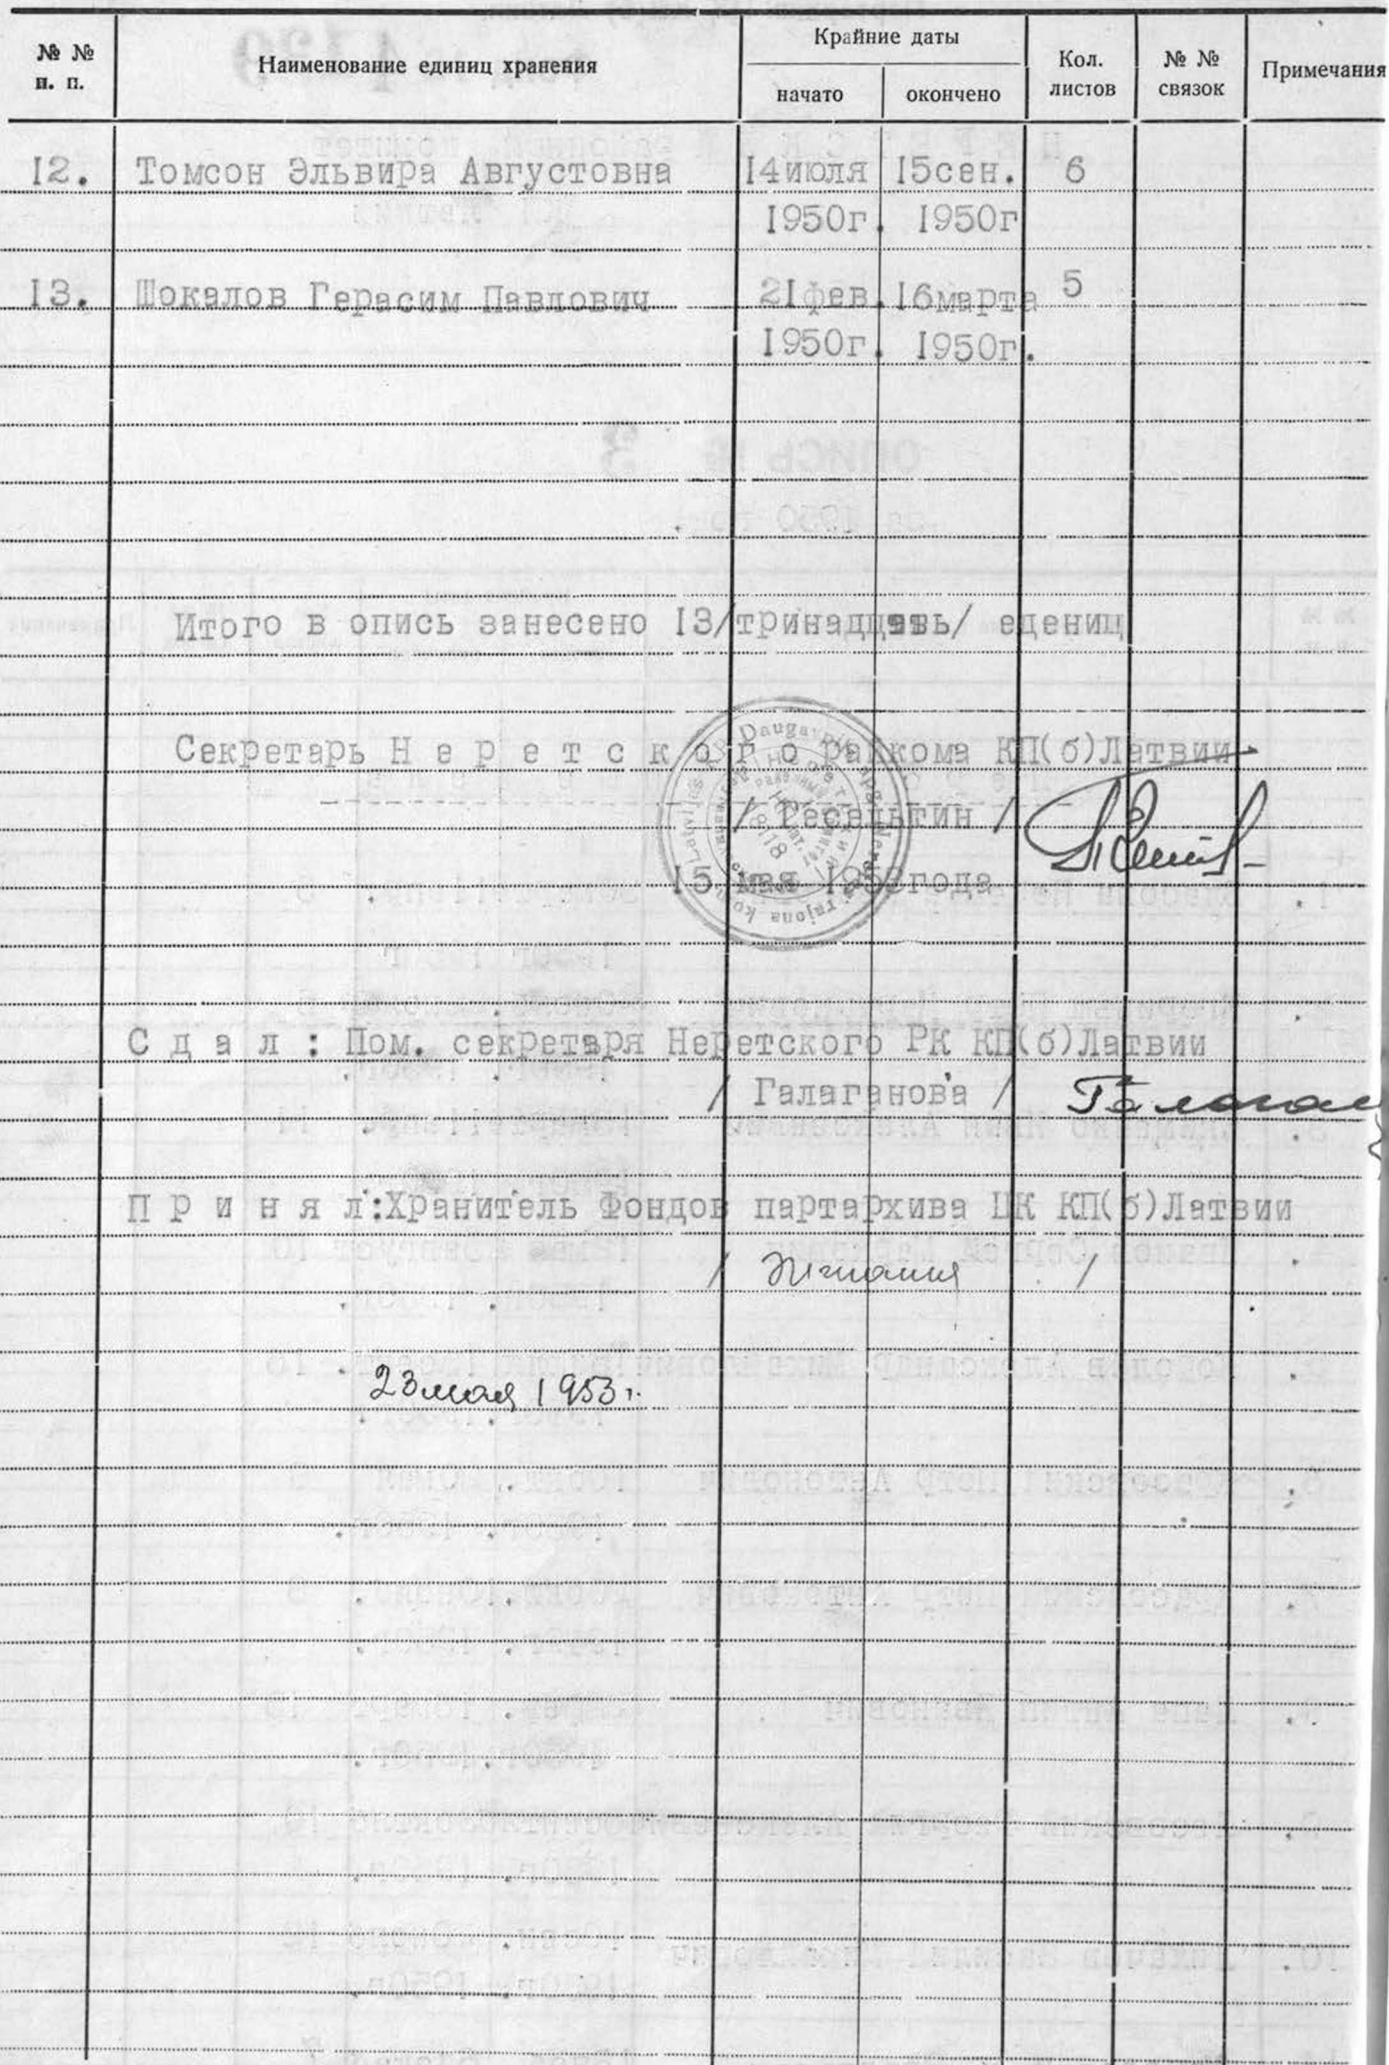 № № п. п. Наименование единиц хранения Крайние даты начато окончено Кол. листов № № связок Примечания
12. Томсон Эльвира Августовна 14июля 15сен. 6
1950г. 1950г
13. Шокалов Герасим Павлович 21фев. 16марта 5
1950г. 1950г.
Итого в опись занесено 13/тринадцать/ едениц
Секретарь Н е р е т с к о г о райкома КП(б)Латвии
/ Тесельгин /
15 мая 1953года
С д а л : Пом. секретаря Неретского РК КП(б)Латвии
/ Галаганова /
П р и н я л:Хранитель Фондов партархива ЦК КП(б)Латвии
/ /
23 мая 1953г.